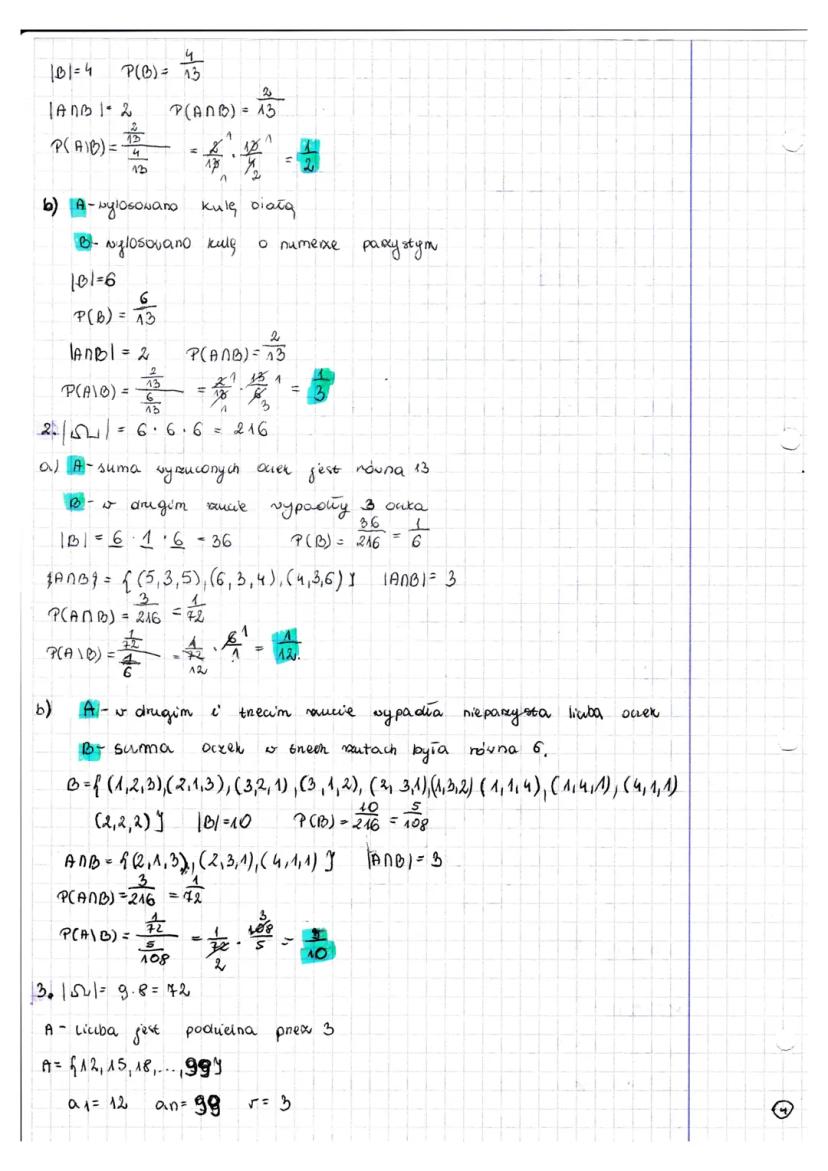 |B|=4 P(B)= 4/13
|A∩B|= 2 P(A∩B) = 2/13
P(A\B)= (2/13)/(4/13) = 2/13 · 13/4 = 1/2
b) A-wylosowano kulę białą
B- wylosowano kulę o numerze parzystym
|B|=6
P(B) = 6/13
|A∩B| = 2 P(A∩B)= 2/13
P(A\B) = (2/13)/(6/13) = 2/13 · 13/6 = 1/3
2. |Ω| = 6 · 6 · 6 = 216
a) A-suma wyrzuconych oczek jest równa 13
B - w drugim rzucie wypadły 3 oczka
|B| = 6 · 1 · 6 = 36 P(B) = 36/216 = 1/6
{A∩B} = { (5,3,5), (6,3,4), (4,3,6)} |A∩B| = 3
P(A∩B) = 3/216 = 1/72
P(A\B) = (1/72)/(1/6) = 1/72 · 6/1 = 1/12.
b) A - w drugim i trzecim rzucie wypadła nieparzysta liczba oczek
B- suma oczek w trzech rzutach była równa 6.
B={ (1,2,3),(2,1,3),(3,2,1),(3,1,2),(2,3,1),(1,3,2) (1,1,4), (1,4,1), (4,1,1)
(2,2,2)} |B|=10 P(B) = 10/216 = 5/108
A∩B = {(2,1,3), (2,3,1), (4,1,1)} |A∩B| = 3
P(A∩B) = 3/216 = 1/72
P(A\B) = (1/72)/(5/108) = 1/72 · 108/5 = 3/10
3. |Ω|= 9·8= 72
A - Liczba jest podzielna przez 3
A= {12,15,18,...,99}
a1= 12 an= 99 r= 3
4